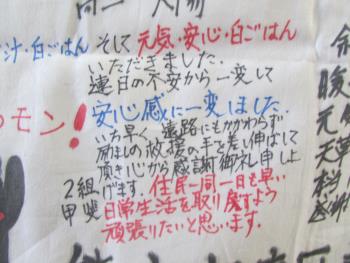 汁・白ごはん そして 元気・安心・白ごはん
いただきました.
連日の不安から一変して
安心感に一変しました.
モン!
いち早く、遠路にもかかわらず
励ましの救援の手を差し伸べて
頂き心から感謝御礼申し上
げます. 住民一同一日も早い
2組
甲斐
日常生活を取り戻すよう
頑張りたいと思います.
暖
元気
天草
本当